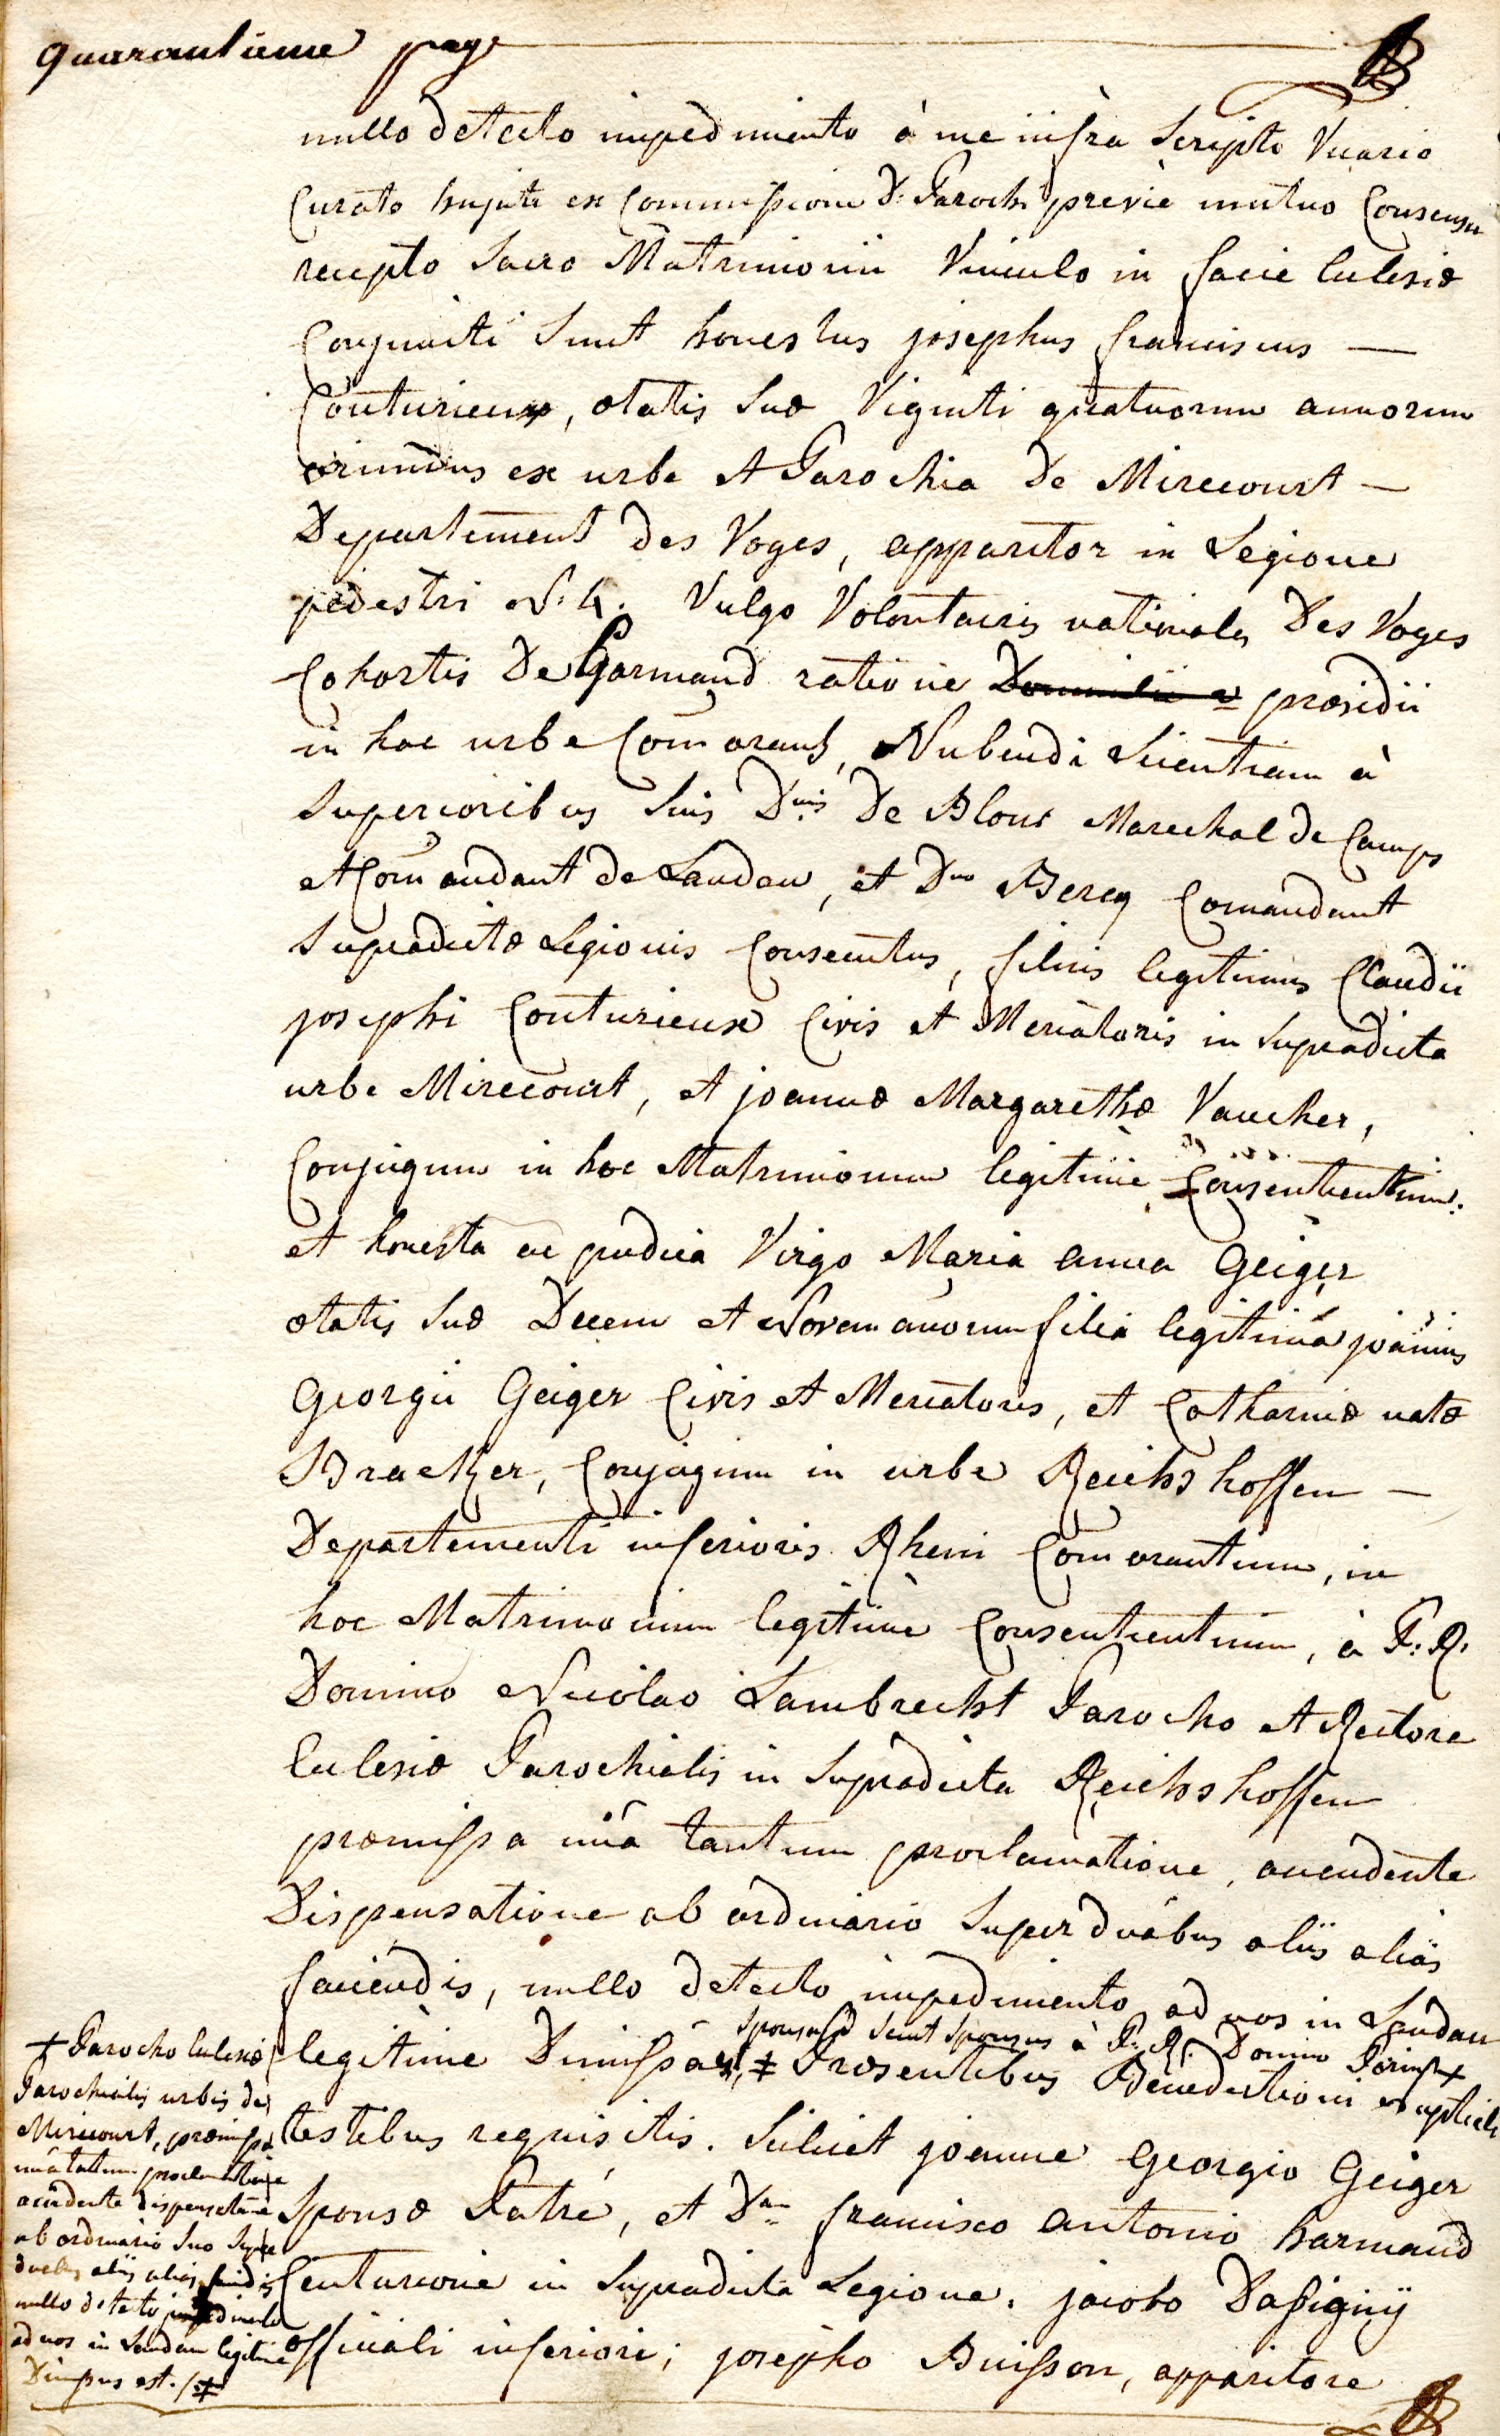 quarantieme page
nullo detecto impedimento à me infra scripto Vicario
Curato hujate ex Commissione D: Parochi previè mutuo Consensu
recepto Sacro Matrimonii Vinculo in facie Eclesiæ
Conjuncti sunt honestus josephus franciscus —
Couturieux, ætatis suæ Viginti quatuorum annorum
oriundus ex urbe et Parochia de Mirecourt —
Departement des Voges, apparitor in Legione
pedestri N: 4. Vulgo Volontaires nationales Des Voges
Cohortis De harmand ratione præsidii
in hac urbe Com̄orans, Nubendi Licentiam à
Superioribus suis Dnis De Blou Marechal de Camps
et Com̄andant de Landau, et Dno Bercy Comandant
supradictæ Legionis Consecutus, filius legitimus Claudii
josephi Couturieux Civis et Mercatoris in supradicta
urbe Mirecourt, et joannæ Margarethæ Vaucher,
Conjugum in hoc Matrimonium legitimè Consentientium.
et honesta ac pudica Virgo Maria anna Geiger
ætatis suæ Decem et Novem anorum filia legitima joannis
Georgii Geiger Civis et Mercatoris, et Catharinæ natæ
Bracker, Conjugum in urbe Reichshoffen —
Departementi inferioris Rheni Com̄orantium, in
hoc Matrimonium legitimè Consentientium, à P: R:
Domino Nicolao Lambrecht Parocho et Rectore
Eclesiæ Parochialis in supradicta Reichshoffen
præmissa unâ tantum proclamatione, accedente
Dispensatione ab ordinario super duabus aliis aliàs
faciendis, nullo detecto impedimento ad nos in Landau
sponsus à P: R: Domino +
legitime Dimissa ‡ Præsentibus Benedictioni nuptiali
testibus requisitis. Scilicet joanne Georgio Geiger
Sponsæ Patre, et Dno francisco antonio harmand
Centurione in supradicta Legione. jacobo Dassigny
officiali inferiori; josepho Buisson, apparitore
+ Parocho Eclesiæ
Parochialis urbis de
Mirecourt, præmissa
unâ tantum proclamatione
accedente dispensatione
ab ordinario suo super
duabus aliis alias faciendis
nullo detecto impedimento
ad nos in Landau legitime
Dimissus est. ‡